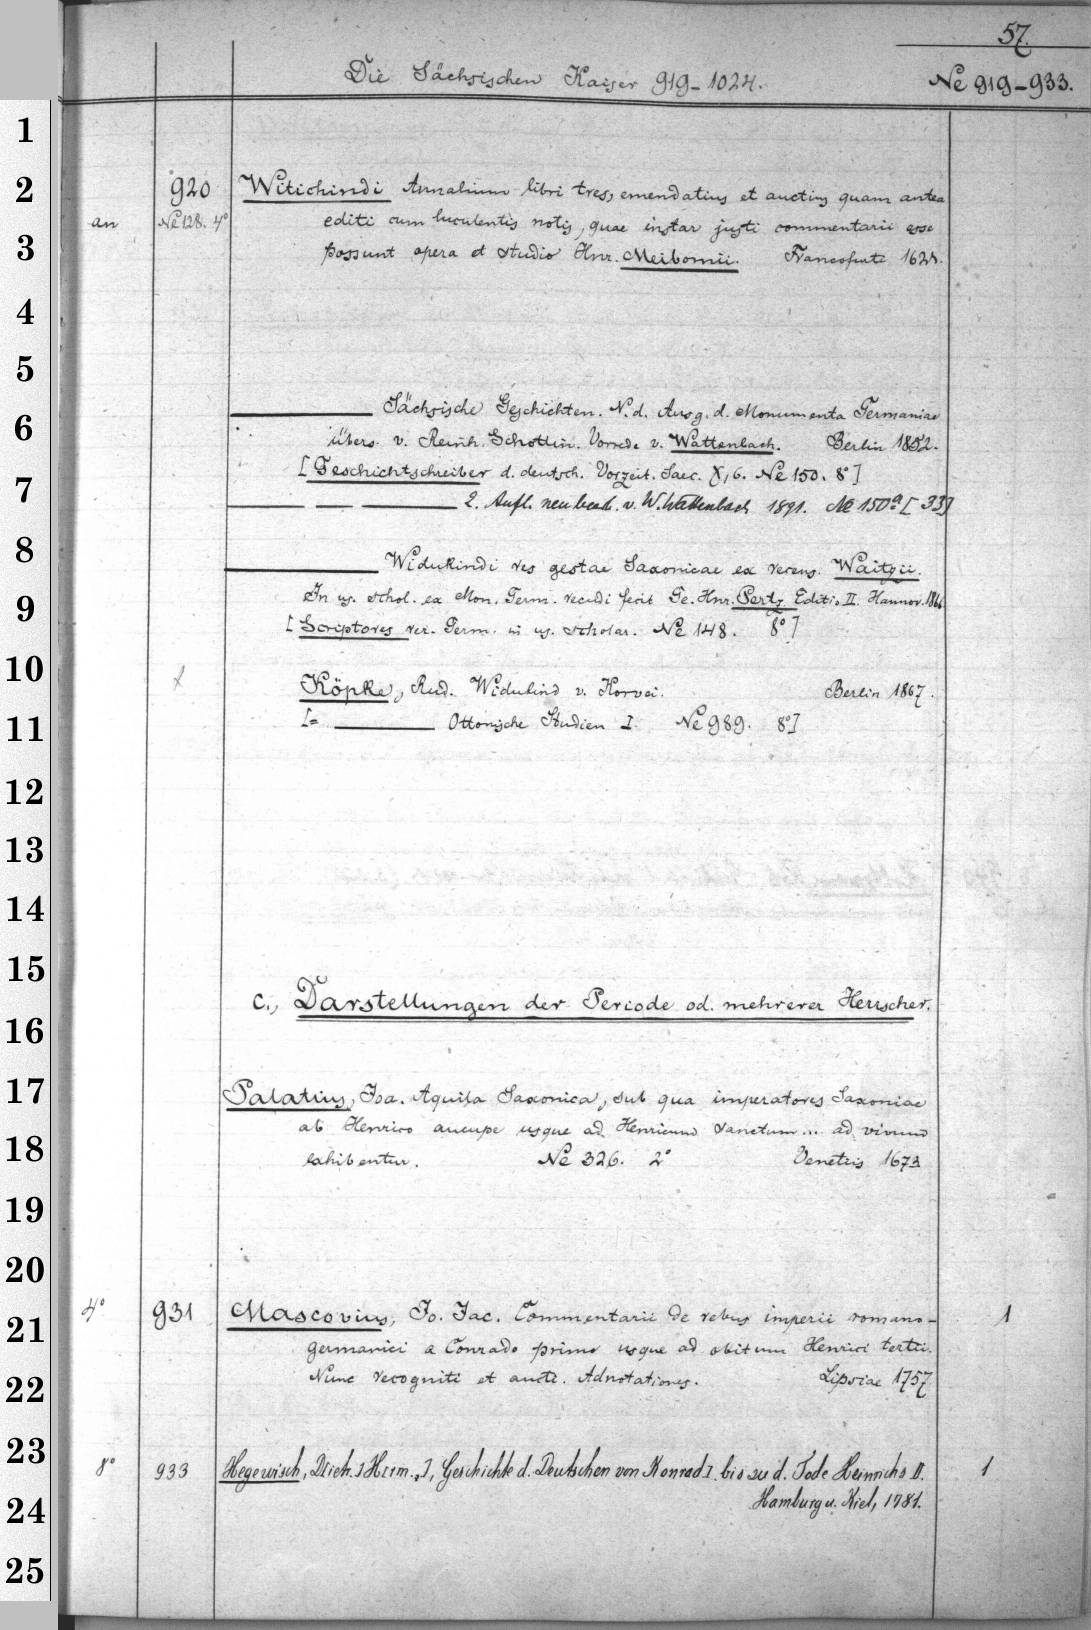 57.
Die Sächsischen Kaiser 919-1024. Ne 919-933.
920 Witichindi Annalium libri tres, emendatius et auctius quam antea
an Ne 128. 4° editi cum luculentis notis, quae instar justi commentarii esse
possunt opera et studio Hnr. Meibomii. Francofurti
Sächsische Geschichten. N. d. Ausg. d. Monumenta Germaniae
übers. v. Reinh. Schottin. Vorrede v. Wattenbach. Berlin 1852.
[Geschichtschreiber d. deutsch. Vorzeit. Saec. X, 6. Ne 150. 8°]
2. Aufl. neu bearb. v. W. Wattenbach 1891. Ne 150a [33]
Widukindi res gestae Saxonicae ex recens. Waitzii.
In us. schol. ex Mon. Germ. recudi fecit Ge. Hnr. Pertz. Editio II. Hannov. 1866
[Scriptores rer. Germ. in us. scholar. Ne 148. 8°]
Köpke, Rud. Widukind v. Korvei. Berlin 1867.
[= Ottonische Studien I. Ne 989. 8°]
c., Darstellungen der Periode od. mehrerer Herrscher.
Palatius, Joa. Aquila Saxonica, sub qua imperatores Saxoniae
ab Henrico aucupe usque ad Henricum sanctum ... ad vivum
exhibentur. Ne 326. 2° Venetiis 1673
4° 931 Mascovius, Jo. Jac. Commentarii de rebus imperii romano- 1
germanici a Conrado primo usque ad obitum Henrici tertii.
Nunc recogniti et aucti. Adnotationes. Lipsiae 1757
8° 933 Hegewisch, Dietr. [Herm.], Geschichte d. Deutschen von Konrad I. bis zu d. Tode Heinrichs II. 1
Hamburg u. Kiel, 1781.
1
2
3
4
5
6
7
8
9
10
11
12
13
14
15
16
17
18
19
20
21
22
23
24
25